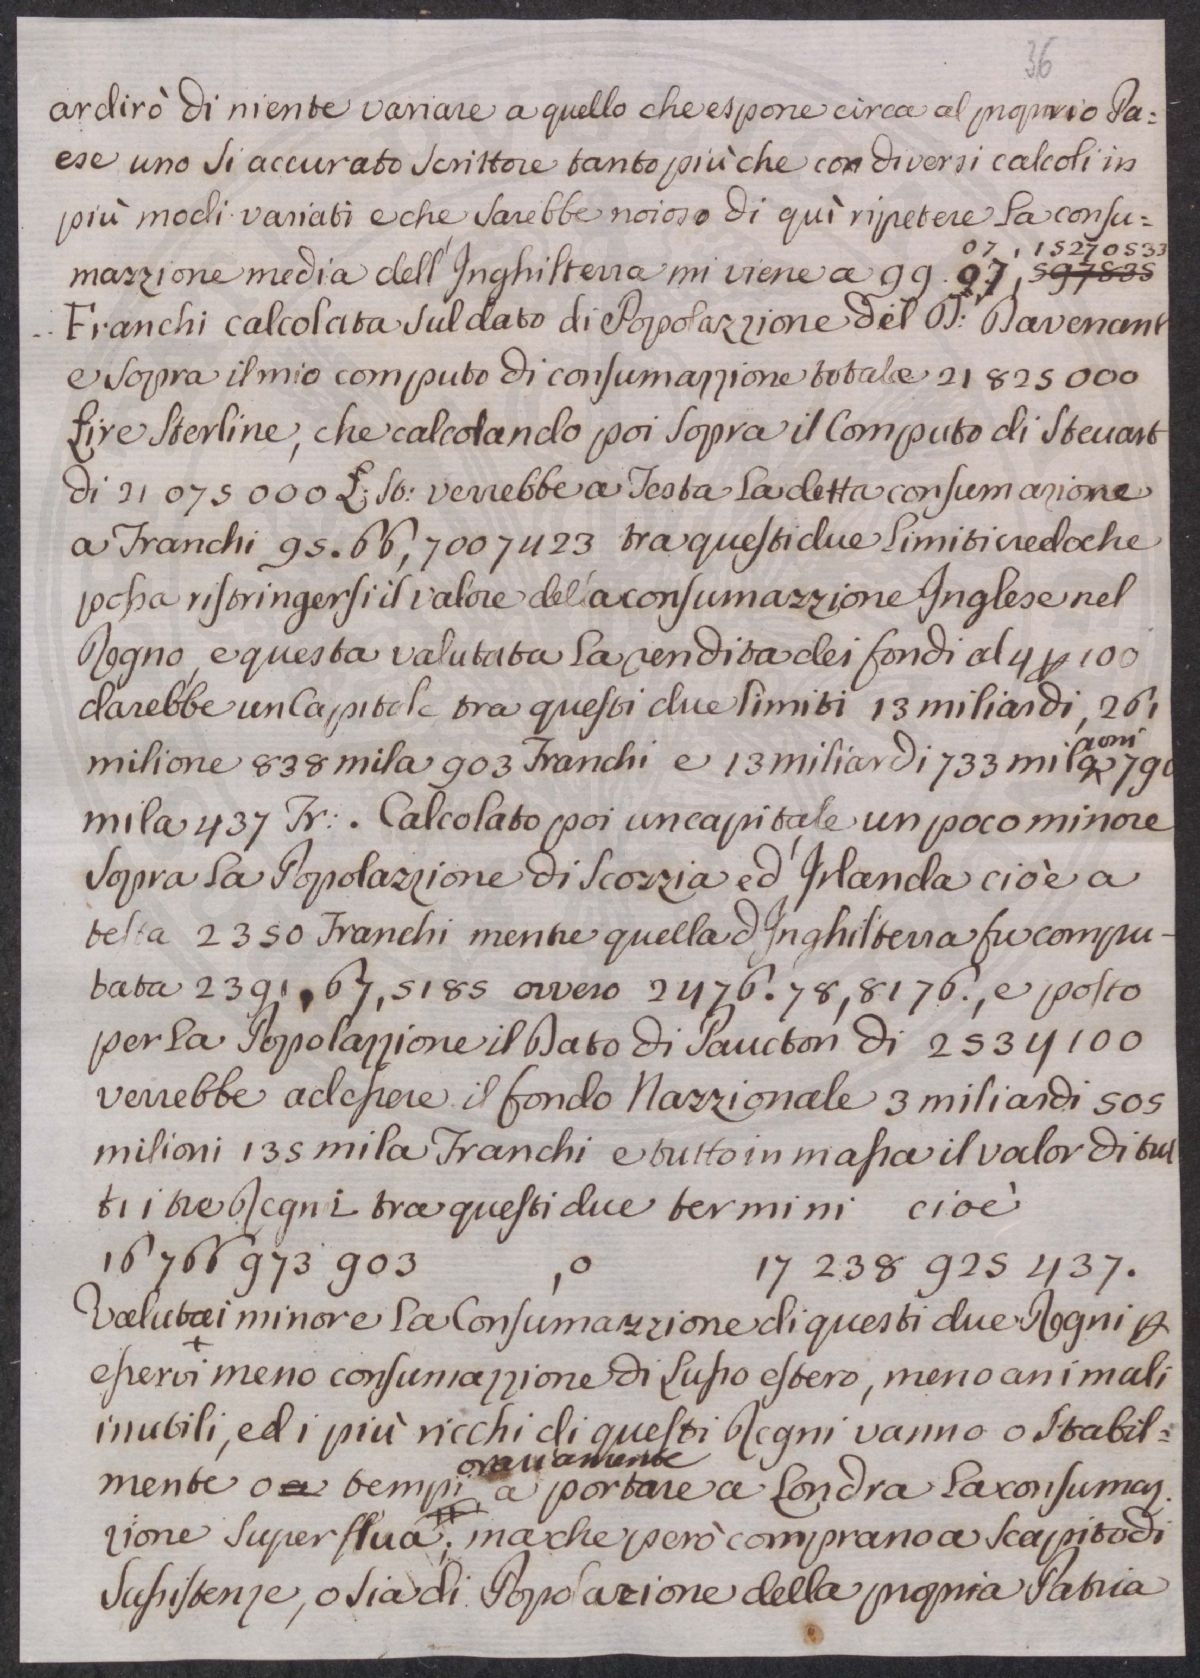 36
ardirò di niente variare a quello che espone circa al proprio Pa=
ese uno si accurato Scrittore tanto più che con diversi calcoli in
più modi variati e che sarebbe noioso di quì ripetere la consu=
07, 15270533
mazzione media dell'Inghilterra mi viene a 99. 97, 597835
Franchi calcolata sul dato di Popolazzione del D: Davenant
e sopra il mio computo di consumazzione totale 21 825 000
Lire Sterline, che calcolando poi sopra il Computo di Steuart
di 21 075 000 L: St: verrebbe a Testa la detta consumazione
a Franchi 95.66,7007423 tra questi due limiti credo che
possa ristringersi il valore della consumazzione Inglese nel
Regno, e questa valutata la rendita dei fondi al 4 p 100
darebbe un Capitale tra questi due limiti 13 miliardi, 261
milione 838 mila 903 Franchi e 13 miliardi 733 milioni 790
mila 437 Fr: . Calcolato poi un capitale un poco minore
sopra la Popolazzione di Scozzia ed Irlanda cioè a
testa 2350 Franchi mentre quella d'Inghilterra fu compu-
tata 2391.67,5185 ovvero 2476.78,8176., e posto
per la Popolazzione il Dato di Paucton di 2534100
verrebbe ad essere il fondo Nazzionale 3 miliardi 505
milioni 135 mila Franchi e tutto in massa il valor di tut
ti i tre Regni tra questi due termini cioè
16 766 973 903 , o 17 238 925 437.
Valutai minore la Consumazzione di questi due Regni p
esservi meno consumazzione di Lusso estero, meno animali
inutili, ed i più ricchi di questi Regni vanno o stabil=
mente o a tempi a portare a Londra la consumaz
zione superflua; ma che però comprano a scapito di
sussistenze, o sia di Popolazione della propria Patria